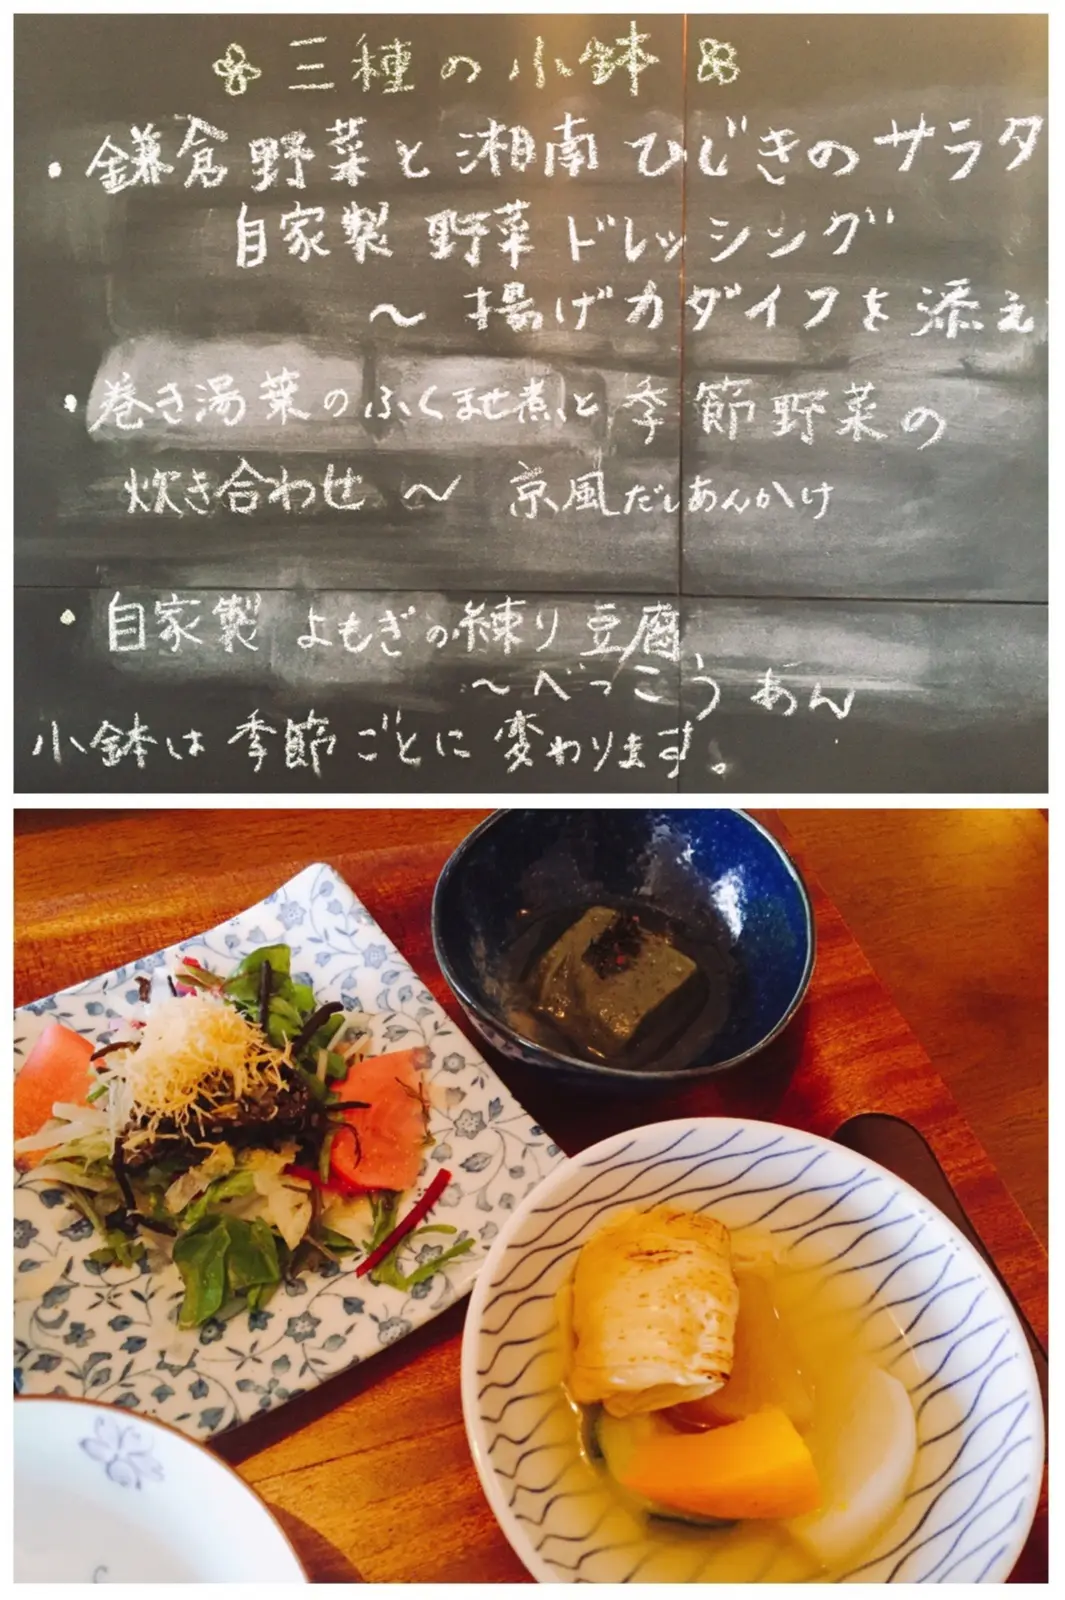 三種の小鉢
・鎌倉野菜と湘南ひじきのサラダ
自家製 野菜ドレッシング
～ 揚げカダイフを添え
・巻き湯葉のふくませ煮と季節野菜の
炊き合わせ ～ 京風だしあんかけ
・自家製 よもぎの練り豆腐
～べっこうあん
小鉢は季節ごとに変わります。